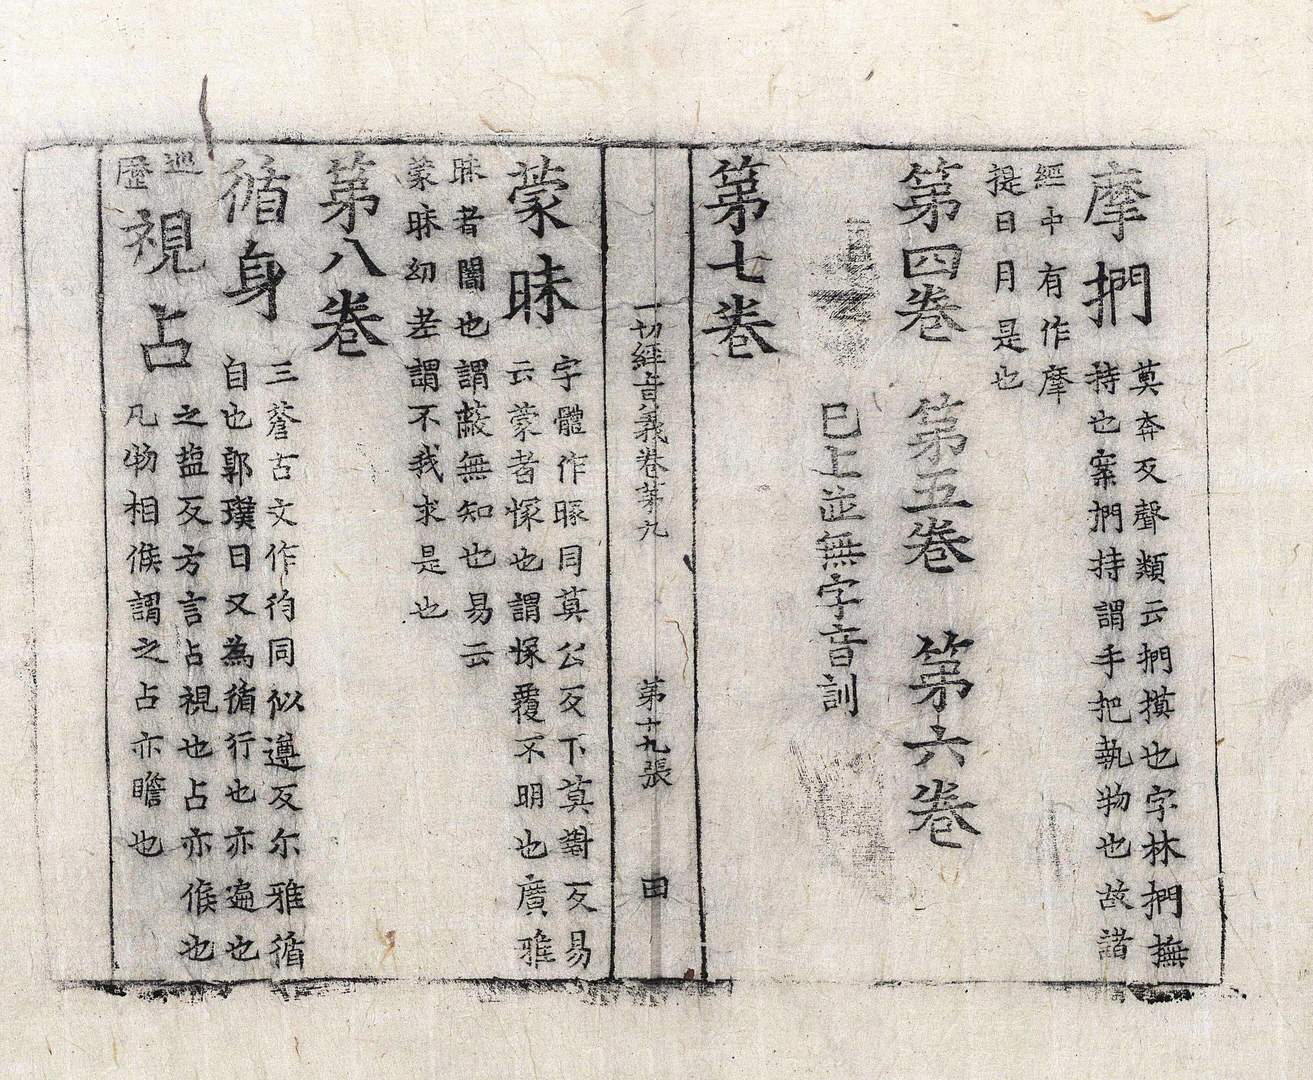 摩捫
莫奔反聲類云捫摸也字林捫撫
持也案捫持謂手把執物也故諸
經中有作摩
提日月是也
第四卷 第五卷 第六卷
已上並無字音訓
第七卷
一切經音義卷第九 第十九張 田
蒙昧
字體作䝉同莫公反下莫對反易
云蒙者懞也謂懞覆不明也廣雅
昧者闇也謂蔽無知也易云
蒙昧幼老謂不我求是也
第八卷
循身
三蒼古文作㣬同似遵反尒雅循
自也郭璞曰又為循行也亦遍也
巡
歷
視占
之塩反方言占視也占亦候也
凡物相候謂之占亦瞻也